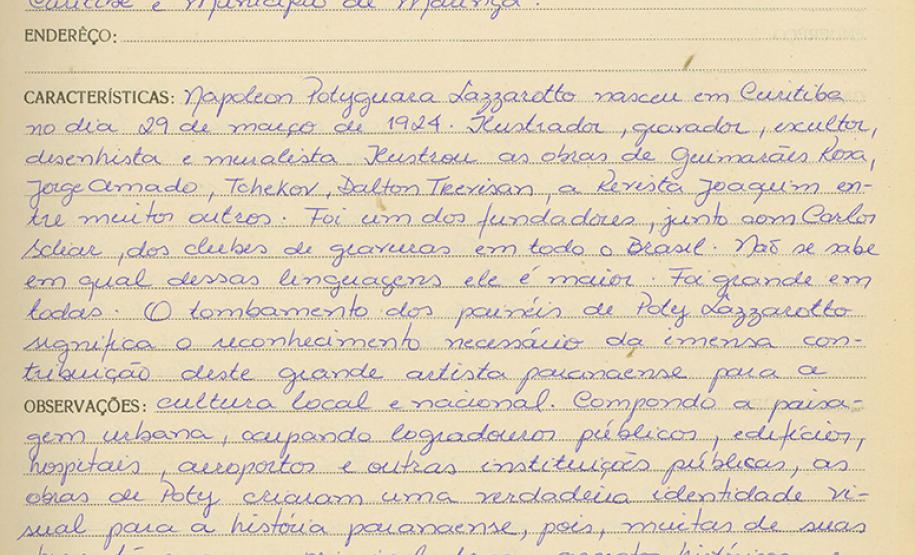 Curitiba e Município de Mauriza.
ENDERÊÇO:
CARACTERÍSTICAS: Napoleon Potyguara Lazzarotto nasceu em Curitiba
no dia 29 de março de 1924. Ilustrador, gravador, escultor,
desenhista e muralista Ilustrou as obras de Guimarães Rosa,
Jorge Amado, Tchekov, Dalton Trevisan, a Revista Joaquim en-
tre muitos outros. Foi um dos fundadores, junto com Carlos
Scliar, dos clubes de gravuras em todo o Brasil. Não se sabe
em qual dessas linguagens ele é maior. Foi grande em
todas. O tombamento dos painéis de Poty Lazzarotto
significa o reconhecimento necessário da imensa con-
tribuição deste grande artista paranaense para a
OBSERVAÇÕES: cultura local e nacional. Compondo a paisa-
gem urbana, ocupando logradouros públicos, edifícios,
hospitais, aeroportos e outras instituições públicas, as
obras de Poty criaram uma verdadeira identidade vi-
sual para a história paranaense, pois, muitas de suas